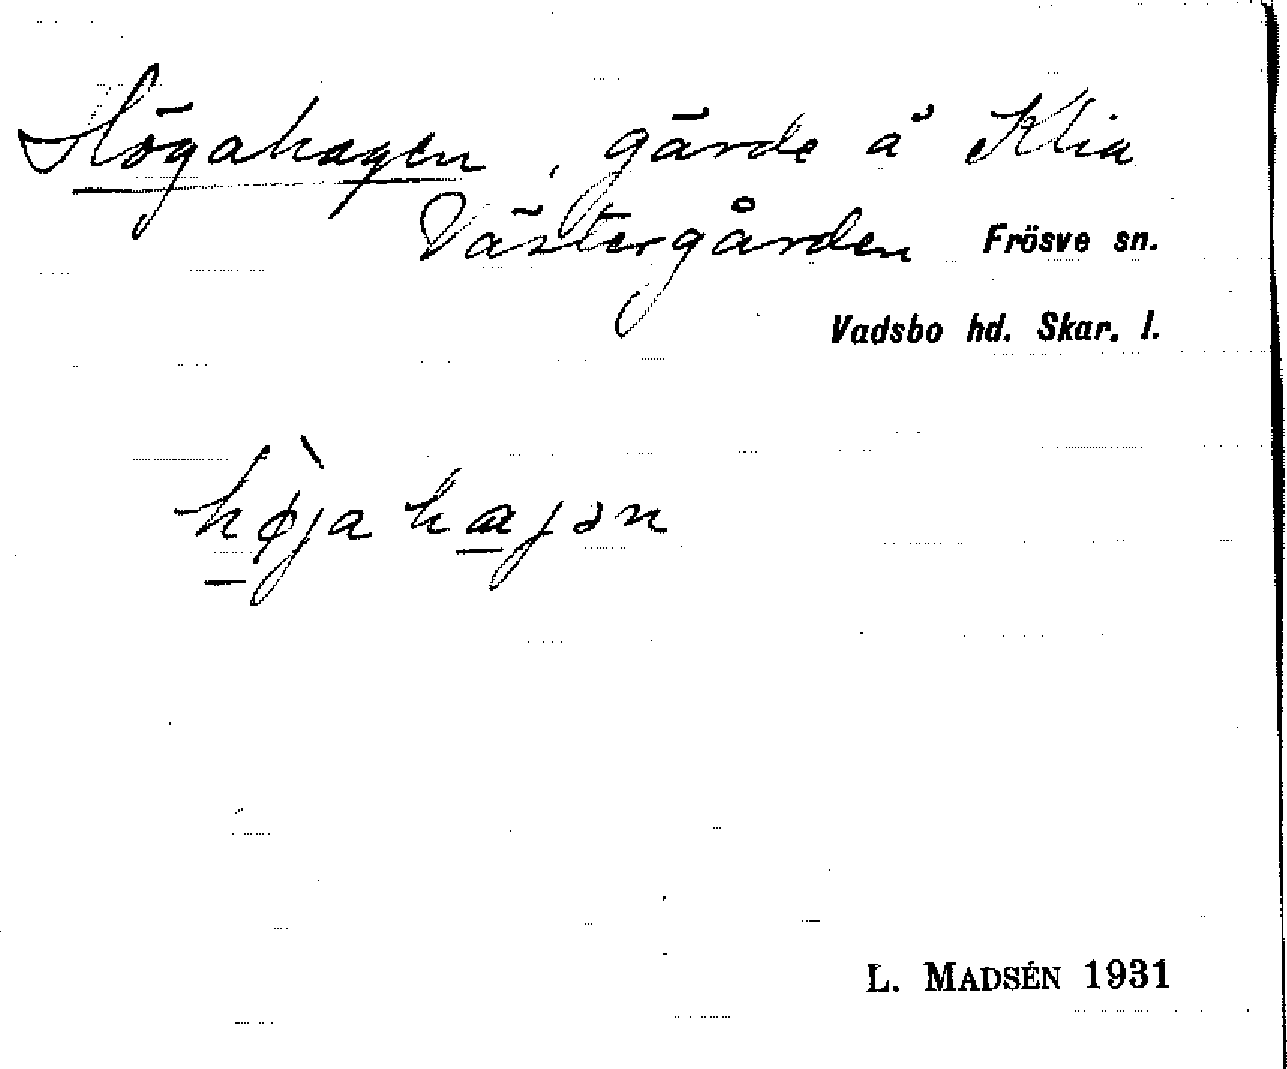 Högahagen, gärde å Klia
Västergården Frösve sn.
Vadsbo hd. Skar. l.
hø̀jahajən
L. MADSÉN 1931